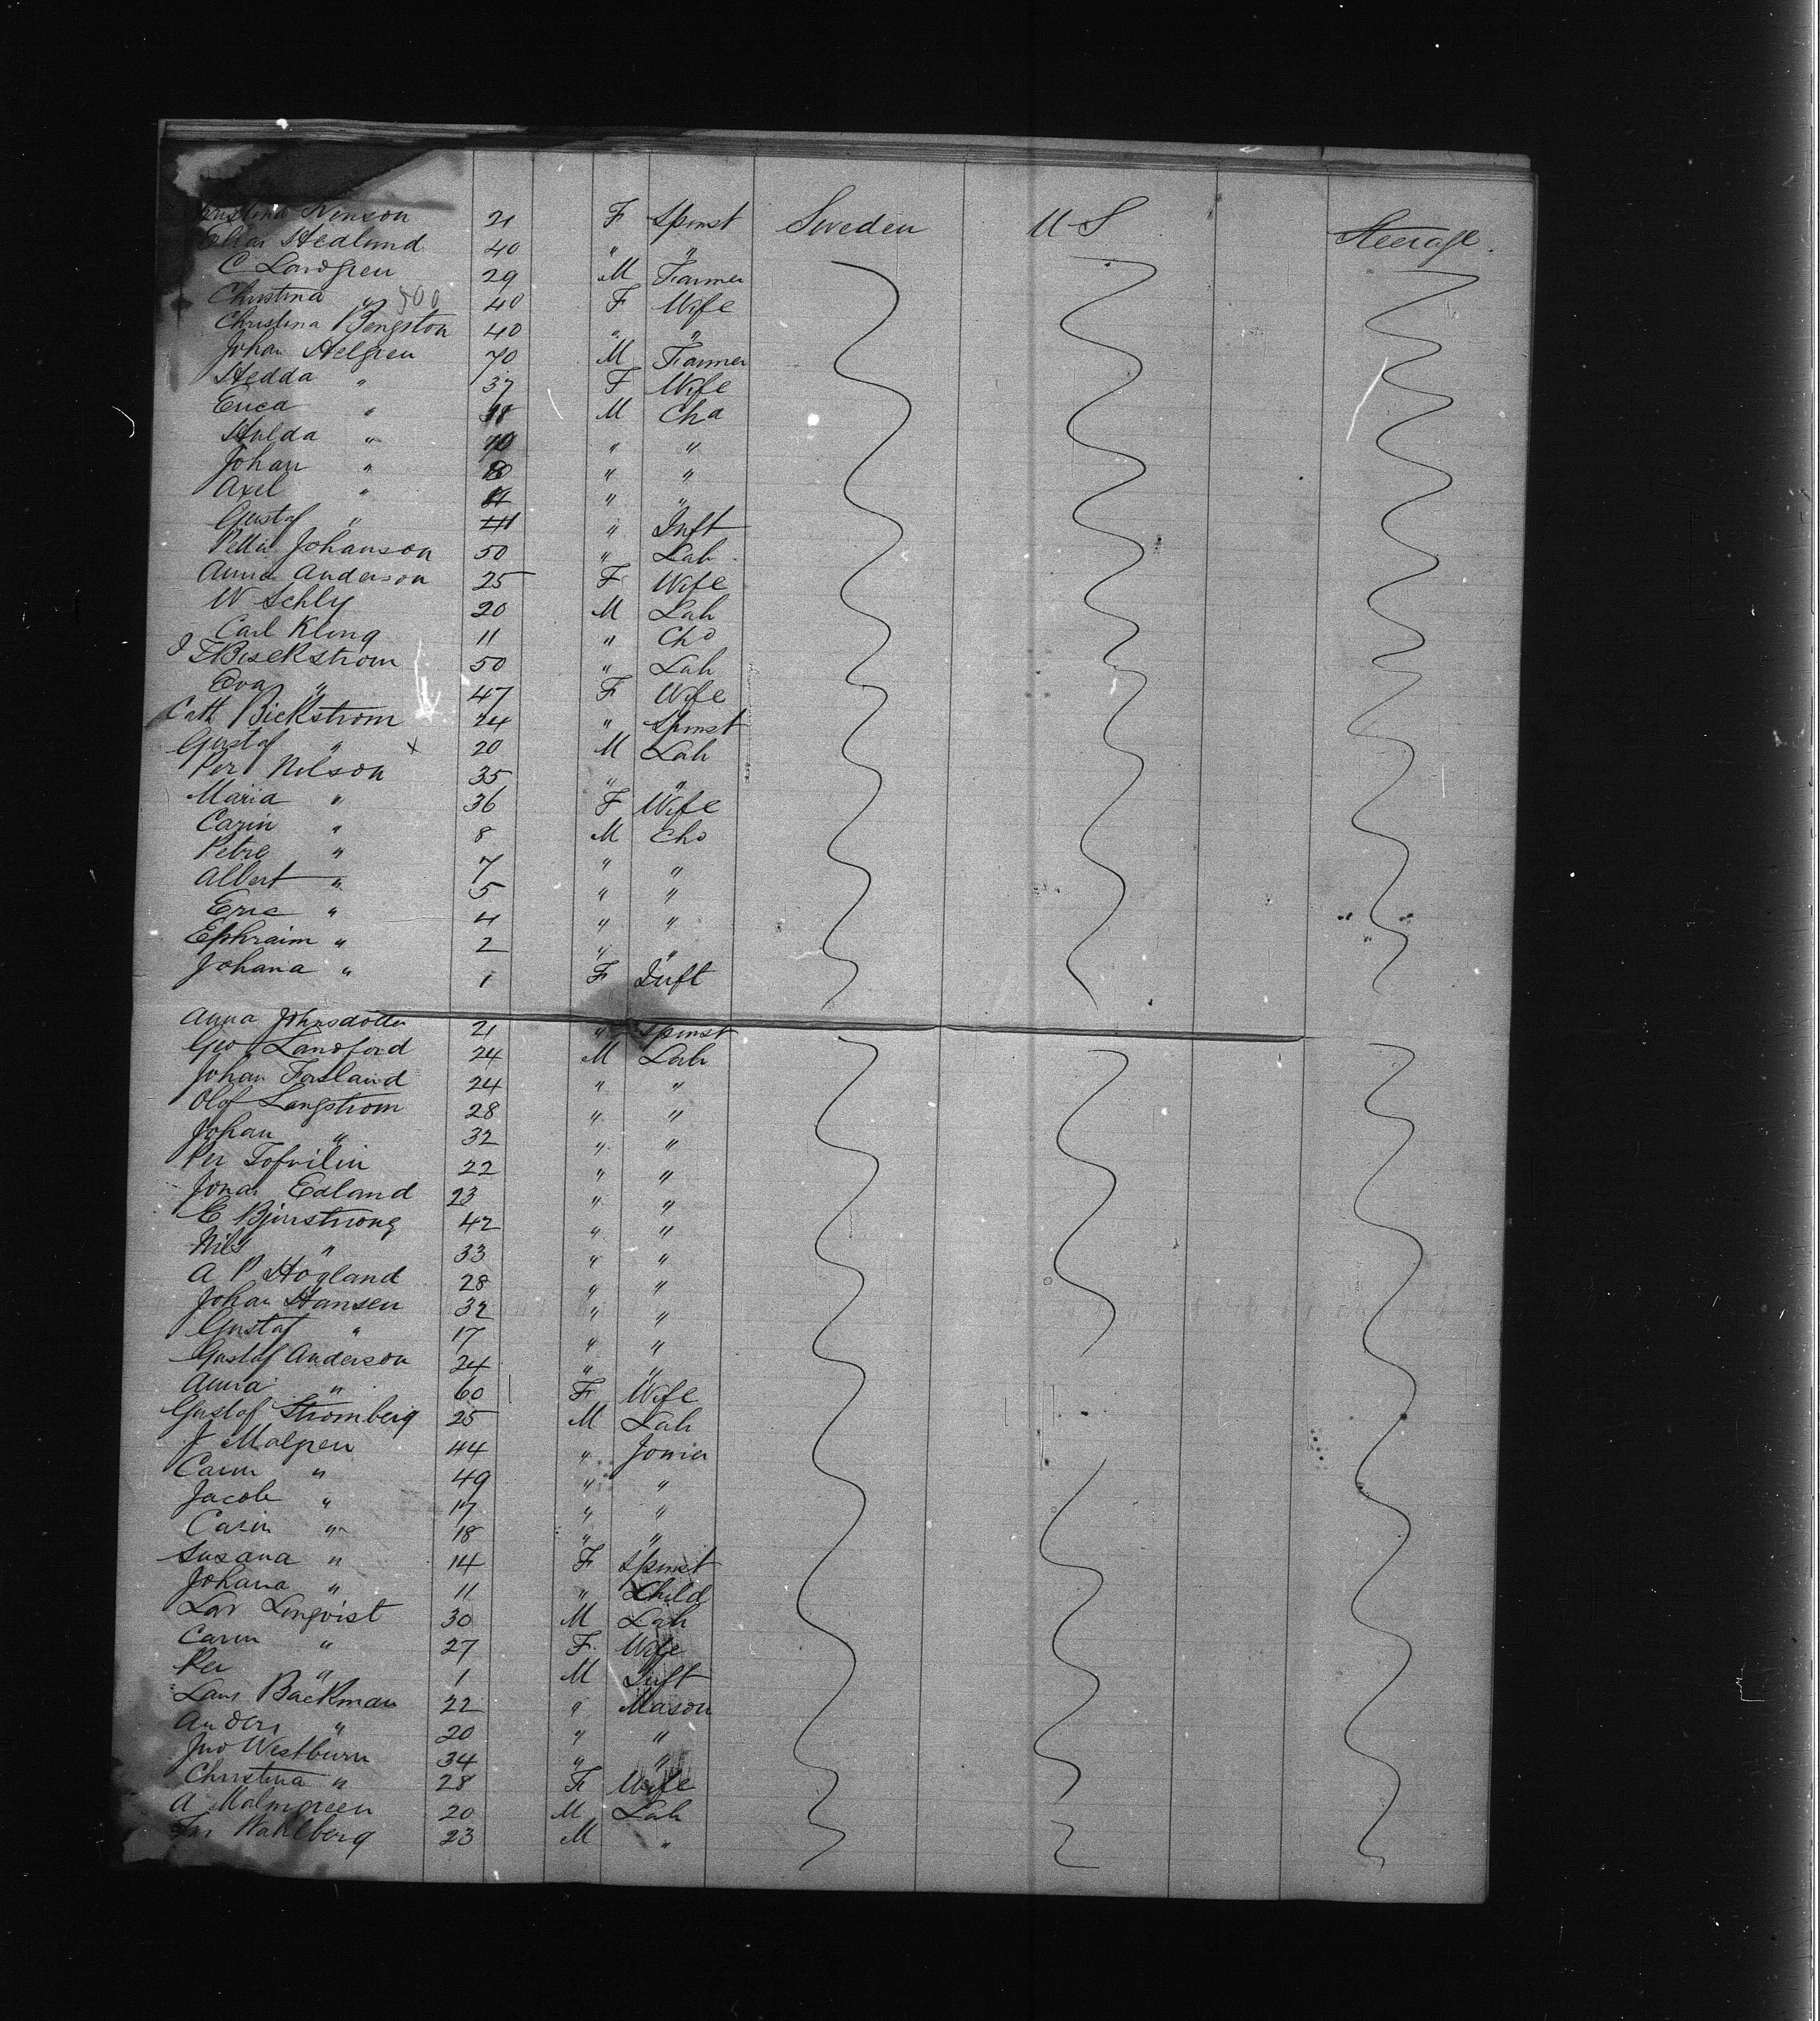 Christina Kenson 21 F Spinst Sweden U S Steerage.
Hedlund 40 " "
C Landgren 29 M Farmer
Christina " 500 40 F Wife
Christina Bengston 40 " "
Johan Helgren 70 M Farmer
Hedda " 37 F Wife
Erica " M Cha
Hulda " " "
Johan " " "
Axel " " "
Gustaf " " Inft
Johanson 50 " Lab
Anna Anderson 25 F Wife
W Schly 20 M Lab
Carl Kling 11 " Chd
50 " Lab
Eva " 47 F Wife
Cath Bickstrom 24 " Spinst
Gustaf " x 20 M Lab
Per Nelson 35 " "
Maria " 36 F Wife
Carin " 8 M Chd
Petre " 7 " "
Albert " 5 " "
Eric " 4 " "
Ephraim " 2 " "
Johana " 1 F Inft
Anna Johnsdotter 21 " Spinst
Geo Landford 24 M Lab
Johan Forsland 24 " "
Olof Langstrom 28 " "
Johan " 32 " "
Per 22 " "
Jonas Edland 23 " "
E Bjinstrong 42 " "
Nils " 33 " "
A P Hogland 28 " "
Johan Hansen 32 " "
Gustaf " 17 " "
Gustaf Anderson 24 " "
Anna " 60 F Wife
Gustaf Stromberg 25 M Lab
J Malgren 44 " Joiner
Carin " 49 " "
Jacob " 17 " "
Carin " 18 " "
Susana " 14 F Spinst
Johana " 11 " Child
Lars Linqvist 30 M Lab
Carin " 27 F Wife
Per " 1 M Inft
Lars Backman 22 " Mason
Anders " 20 " "
Jno Westburn 34 " "
Christina " 28 F Wife
A Malmgreen 20 M Lab
Wahlberg 23 M "